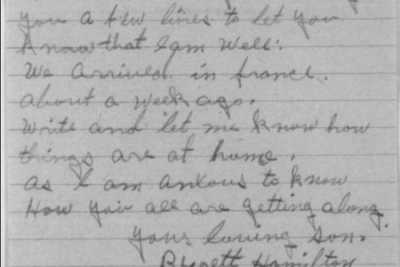 you a few lines to let you
know that I am Well.
We arrived in france.
about a week ago.
Write and let me know how
things are at home.
as I am anxous to know
How you all are getting along.
your loving son.
Hamilton